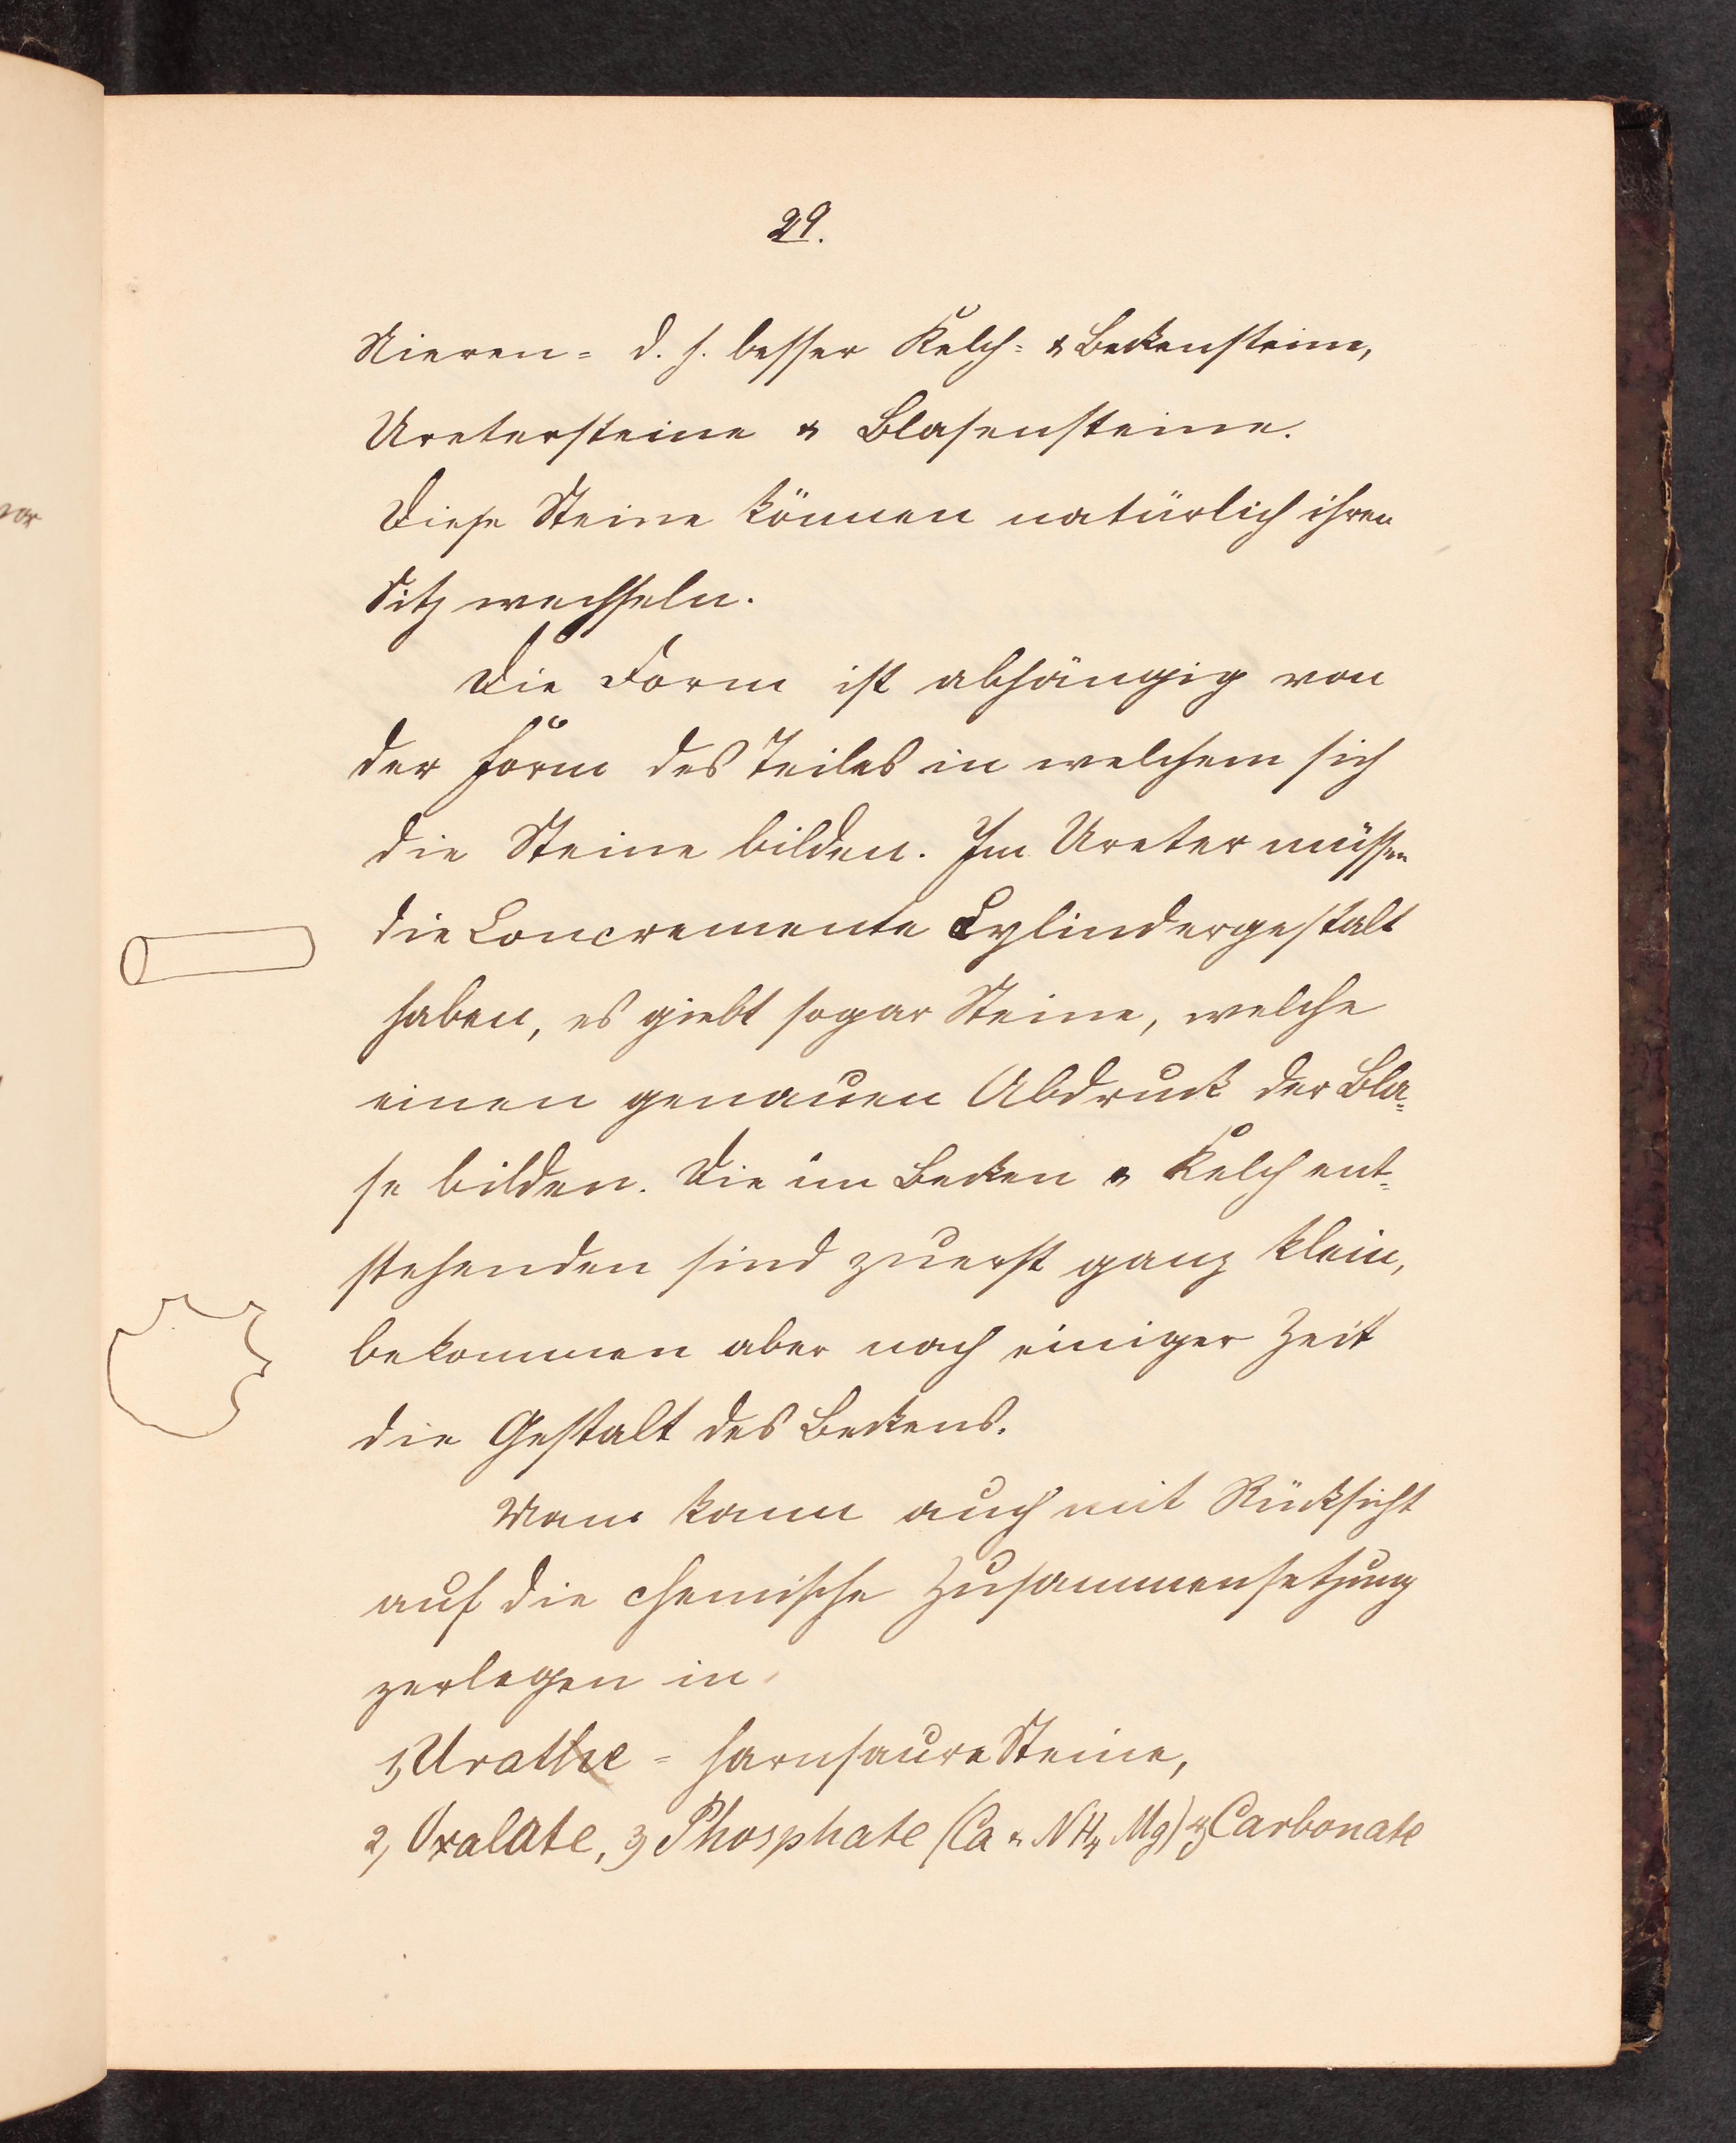 29.
Nieren= d. h. besser Kelch= & Beckensteine,
Uretersteine & Blasensteine.
Diese Steine können natürlich ihren
Sitz wechseln.
Die Form ist abhängig von
der Form des Teiles in welchem sich
die Steine bilden. Im Ureter müssen
die Concremente Cylindergestalt
haben, es giebt sogar Steine, welche
einen genauen Abdruck der Bla=
se bilden. Die im Becken & Kelch ent=
stehenden sind zuerst ganz klein,
bekommen aber nach einiger Zeit
die Gestalt des Beckens.
Man kann auch mit Rücksicht
auf die chemische Zusammensetzung
zerlegen in
1, Urate = harnsaure Steine,
2, Oxalate, 3, Phosphate (Ca & NH4 Mg) 4, Carbonate